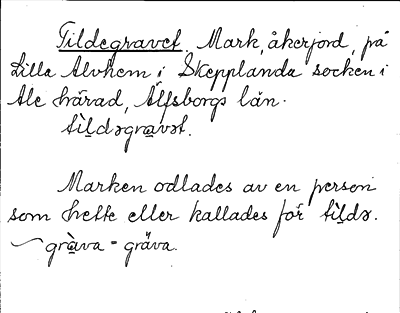 Tildegravet. Mark, åkerjord, på
Lilla Alvhem i Skepplanda socken i
Ale härad, Älfsborgs län.
tìldəgravət.
Marken odlades av en person
som hette eller kallades för tìldə.
gràva = gräva.